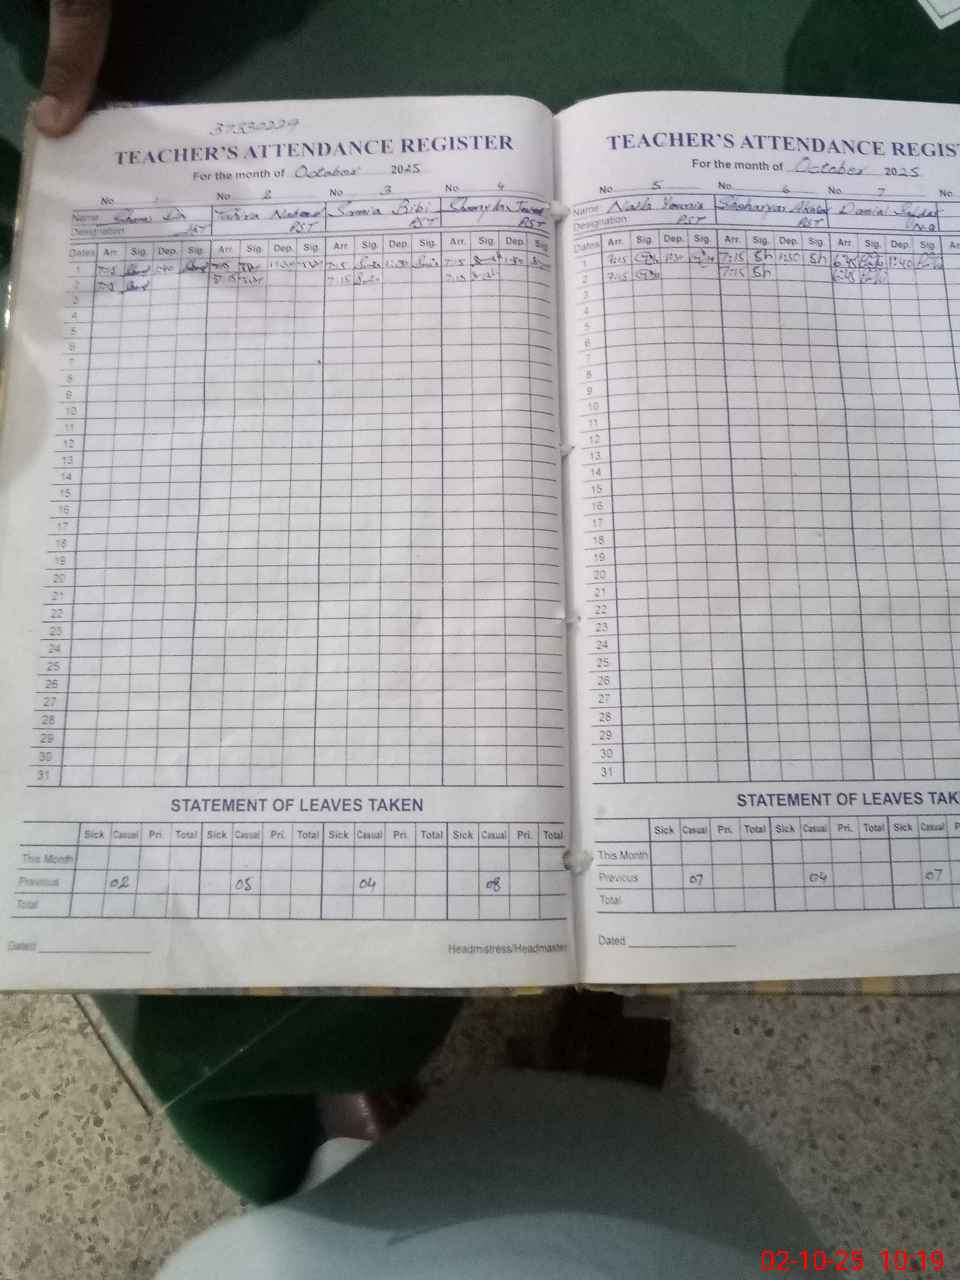 37330229
TEACHER'S ATTENDANCE REGISTER
For the month of October 2025
No 1 No 2 No 3 No 4
Name Samia Bibi
Designation PST PST PST
Dates Arr. Sig. Dep. Sig. Arr. Sig. Dep. Sig. Arr. Sig. Dep. Sig. Arr. Sig. Dep. Sig.
1 7:15 7:15 7:15 7:15 1:30
2 7:15 7:15 7:15 7:15
3
4
5
6
7
8
9
10
11
12
13
14
15
16
17
18
19
20
21
22
23
24
25
26
27
28
29
30
31
STATEMENT OF LEAVES TAKEN
Sick Casual Pri. Total Sick Casual Pri. Total Sick Casual Pri. Total Sick Casual Pri. Total
This Month
Previous 02 05 04 08
Total
Dated
Headmistress/Headmaster
TEACHER'S ATTENDANCE REGIST
For the month of October 2025
No 5 6 No 7 No
Name Naila Younis Shaharyar Danial
Designation PST PST
Dates Arr. Sig. Dep. Sig. Arr. Sig. Dep. Sig. Arr. Sig. Dep. Sig. Arr
1 7:15 7:15 Sh 1:30 Sh 6:45 1:40
2 7:15 7:15 Sh 6:45
3
4
5
6
7
8
9
10
11
12
13
14
15
16
17
18
19
20
21
22
23
24
25
26
27
28
29
30
31
STATEMENT OF LEAVES TAK
Sick Casual Pri. Total Sick Casual Pri. Total Sick Casual P
This Month
Previous 07 04 07
Total
Dated
02-10-25 10:19